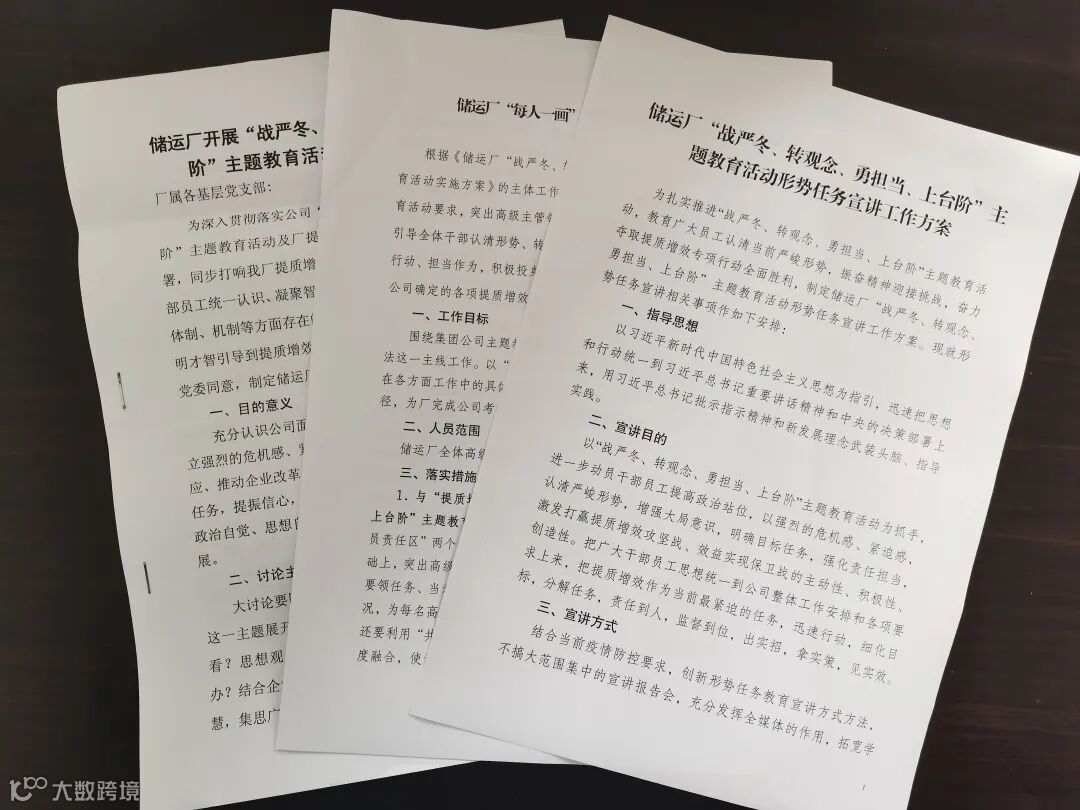 储运厂开展“战严冬、
阶”主题教育活
厂属各基层党支部：
为深入贯彻落实公司“
阶”主题教育活动及厂提
署，同步打响我厂提质增
部员工统一认识、凝聚智
体制、机制等方面存在
明才智引导到提质增效
党委同意，制定储运厂
一、目的意义
充分认识公司面
立强烈的危机感、
应、推动企业改革
任务，提振信心，
政治自觉、思想自
展。
二、讨论主
大讨论要
这一主题展开
看？思想观
办？结合企
慧，集思广
储运厂“每人一画”
根据《储运厂“战严冬、
育活动实施方案》的主体工作
育活动要求，突出高级主管
引导全体干部认清形势、转
行动、担当作为，积极投
公司确定的各项提质增效
一、工作目标
围绕集团公司主题
法这一主线工作。以“
在各方面工作中的具
径，为厂完成公司考
二、人员范围
储运厂全体高级
三、落实措施
1．与“提质
上台阶”主题教
员责任区”两个
础上，突出高级
要领任务、当
况，为每名高
还要利用“共
度融合，使
储运厂“战严冬、转观念、勇担当、上台阶”主
题教育活动形势任务宣讲工作方案
为扎实推进“战严冬、转观念、勇担当、上台阶”主题教育活
动，教育广大员工认清当前严峻形势，振奋精神迎接挑战，奋力
夺取提质增效专项行动全面胜利，制定储运厂“战严冬、转观念、
勇担当、上台阶”主题教育活动形势任务宣讲工作方案。现就形
势任务宣讲相关事项作如下安排：
一、指导思想
以习近平新时代中国特色社会主义思想为指引，迅速把思想
和行动统一到习近平总书记重要讲话精神和中央的决策部署上
来，用习近平总书记批示指示精神和新发展理念武装头脑、指导
实践。
二、宣讲目的
以“战严冬、转观念、勇担当、上台阶”主题教育活动为抓手，
进一步动员干部员工提高政治站位，以强烈的危机感、紧迫感，
认清严峻形势，增强大局意识，明确目标任务，强化责任担当，
激发打赢提质增效攻坚战、效益实现保卫战的主动性、积极性、
创造性。把广大干部员工思想统一到公司整体工作安排和各项要
求上来，把提质增效作为当前最紧迫的任务，迅速行动，细化目
标，分解任务，责任到人，监督到位，出实招，拿实策，见实效。
三、宣讲方式
结合当前疫情防控要求，创新形势任务教育宣讲方式方法，
不搞大范围集中的宣讲报告会，充分发挥全媒体的作用，拓宽学
1
大数跨境